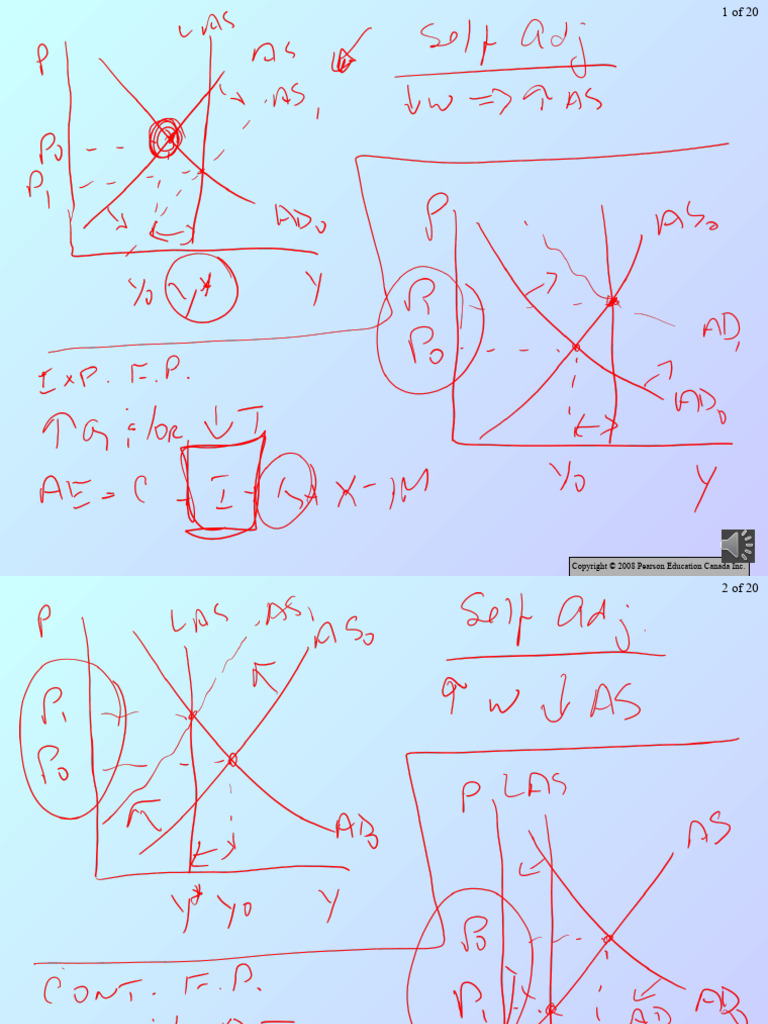 1 of 20
P
LAS
AS
AS₁
Self Adj
↓W => ↑ AS
P₀
P₁
AD₀
Y₀ Y* Y
P
AS₀
P₁
P₀
AD₁
AD₀
Y₀ Y
Exp. F.P.
↑G i/or ↓T
AE = C + I + G + X - IM
Copyright © 2008 Pearson Education Canada Inc.
2 of 20
P
LAS
AS₁
AS₀
Self Adj.
↑ W ↓ AS
P₁
P₀
AD₀
Y* Y₀ Y
P LAS
AS
P₀
P₁
AD₀
AD
Cont. F.P.